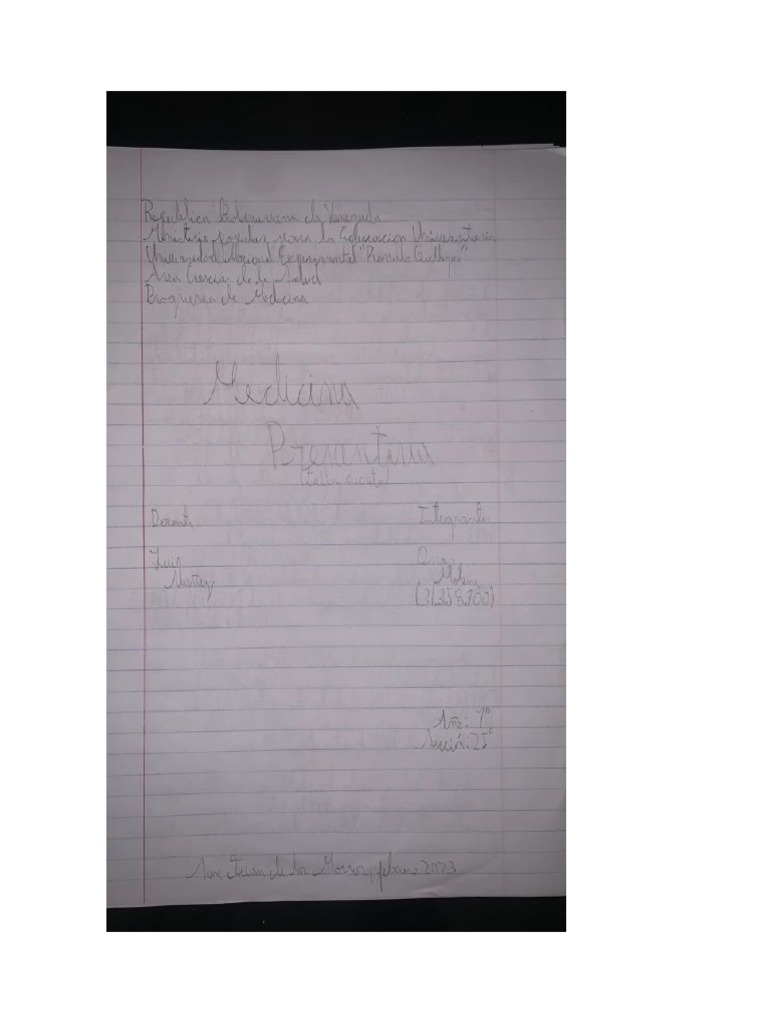 Republica Bolivariana de Venezuela
Ministerio popular para la Educacion Universitaria
Universidad Nacional Experimental "Romulo Gallegos"
Area Ciencias de la Salud
Programa de Medicina
Medicina
Preventiva
Docente
Integrantes
Luis
Molina
(31.358.700)
Año: 1°
Sección: 25
San Juan de los Morros, febrero 2023